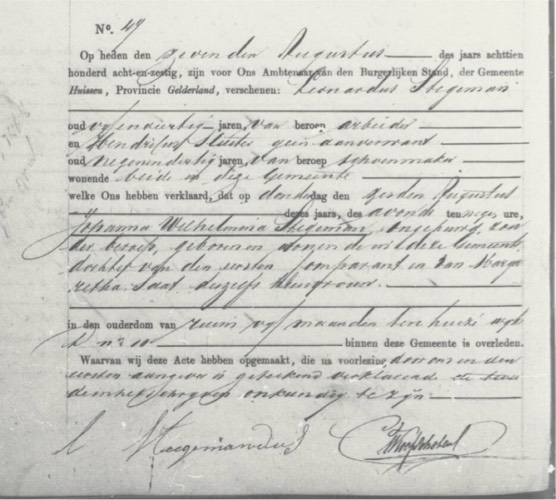 No. 47
Op heden den zevenden Augustus des jaars achttien
honderd acht-en-zestig, zijn voor Ons Ambtenaar van den Burgerlijken Stand, der Gemeente
Huissen, Provincie Gelderland, verschenen: Leonardus Stegeman
oud vijfendertig jaren, van beroep arbeider
en Hendrikus geen aanverwant
oud negenendertig jaren, van beroep schoenmaker
wonende beide in deze Gemeente
welke Ons hebben verklaard, dat op donderdag den zesden Augustus
dezes jaars, des avonds ten negen ure,
Johanna Wilhelmina Stegeman, ongehuwd, zon
der beroep, geboren en wonende in deze Gemeente
dochter van den eersten Comparant en van Marga
retha Saat deszelfs huisvrouw
in den ouderdom van ruim vijf maanden ten huize wijk
D no 10 binnen deze Gemeente is overleden.
Waarvan wij deze Acte hebben opgemaakt, die na voorlezing door ons en den
eersten aangever is geteekend verklarende de tweede
onkundig te zijn